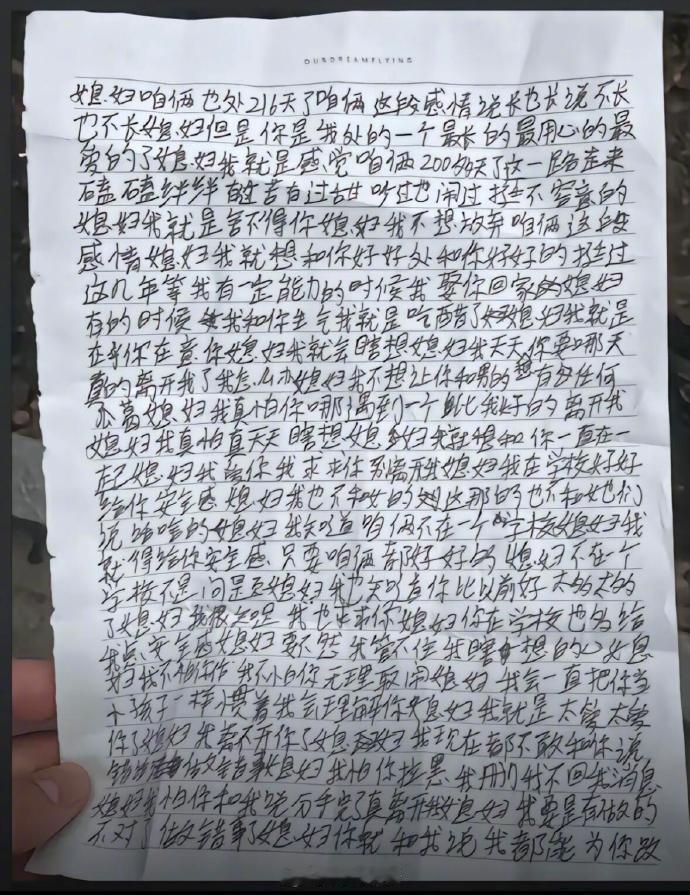 OURDREAMFLYING
媳妇咱俩也处216天了咱俩这段感情说长也长说不长
也不长媳妇但是你是我处的一个最长的最用心的最
爱的了媳妇我就是感觉咱俩200多天了这一路走来
磕磕绊绊的苦过甜吵过也闹过挺不容易的
媳妇我就是舍不得你媳妇我不想放弃咱俩这段
感情媳妇我就想和你好好处和你好好的挺过
这几年等我有一定能力的时候我娶你回家媳妇
有的时候我和你生气我就是吃醋了媳妇我就是
在乎你在意你媳妇我就会瞎想媳妇我天天你要哪天
真的离开我了我怎么办媳妇我不想让你和男的有任何
媳妇我真怕你哪遇到一个比我好的离开我
媳妇我真怕真天天瞎想媳妇我就想和你一直在一
起媳妇我离你我求求你不离开我媳妇我在学校好好
给你安全感媳妇我也不和女的这那的也不和她们
说啥啥的媳妇我知道咱俩不在一个学校媳妇我
就得给你安全感只要咱俩都好好的媳妇不在一个
学校不是问是媳妇我也知道你比以前好太多太多
了媳妇我很知足我也求求你媳妇你在学校也多给
我点安全感媳妇要不然我管不住我瞎想的心媳
妇我不怕你作我不怕你无理取闹媳妇我会一直把你当
小孩子一样惯着我会理解你媳妇我就是太爱太爱
你了媳妇我离不开你了媳妇我现在都不敢和你说
做错事媳妇我怕你拉黑我删我不回我消息
媳妇我怕你和我说分手完了真离开我媳妇我要是有做的
不对了做错事了媳妇你就和我说我都能为你改